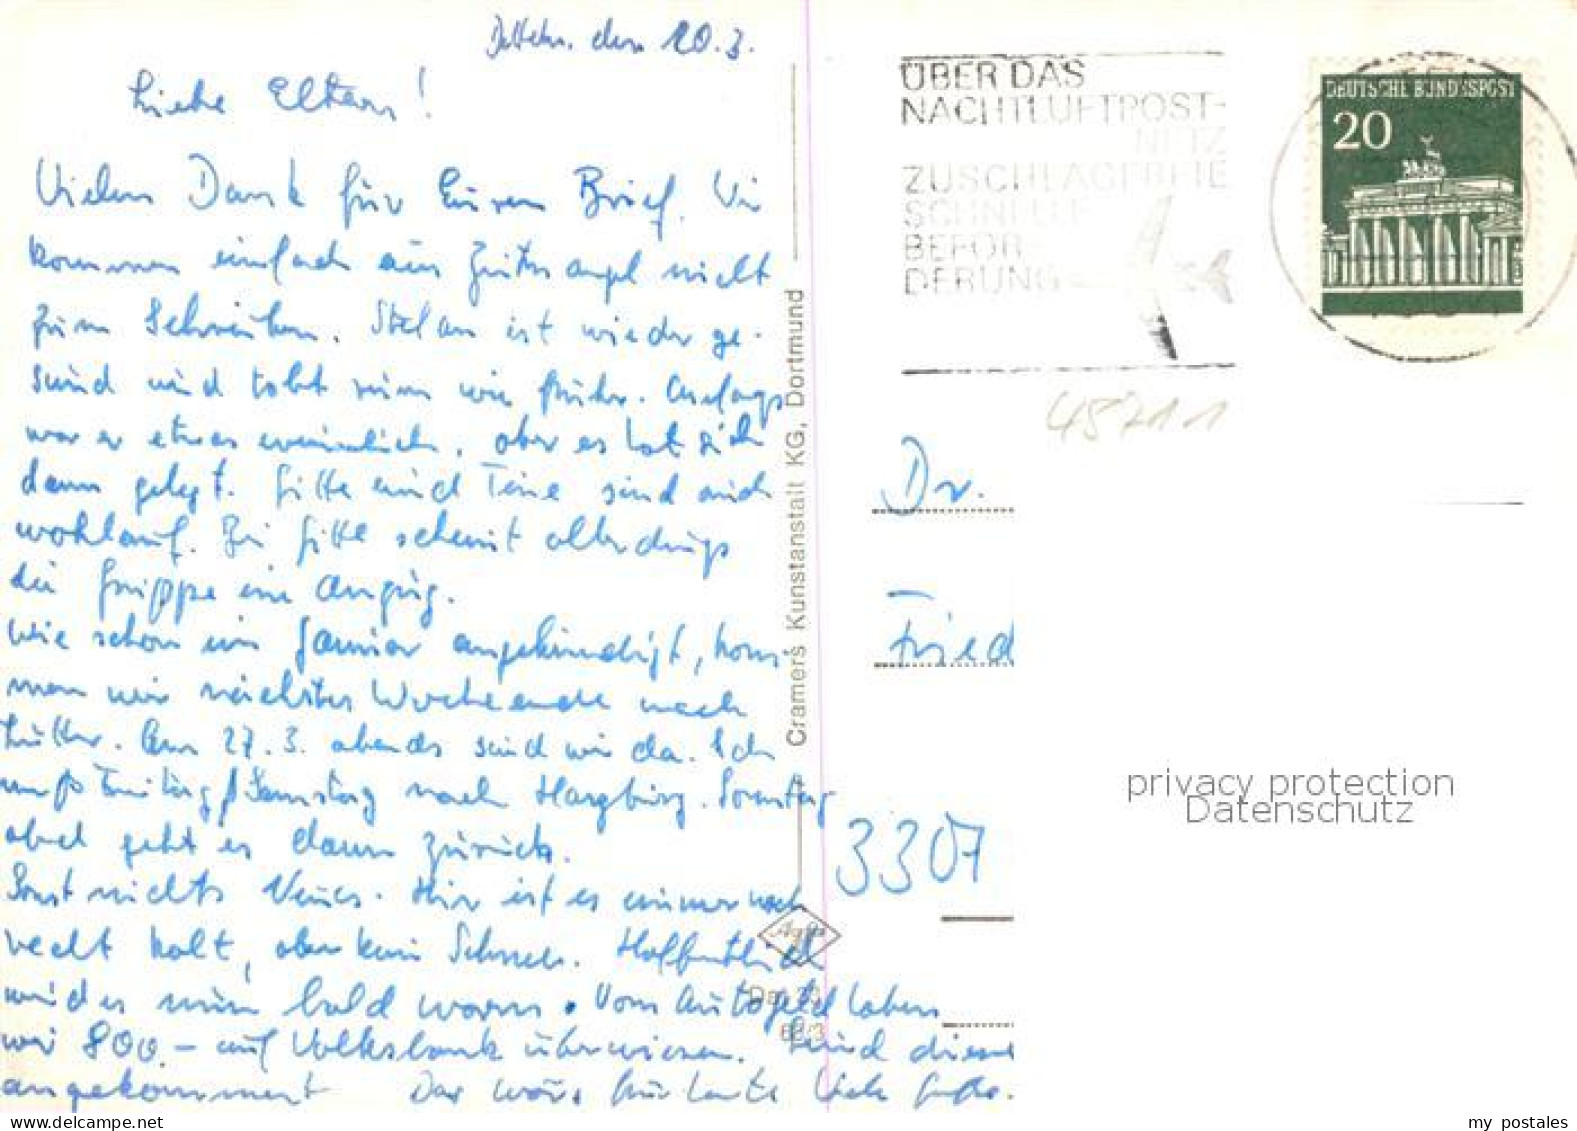 den 20.3.
Liebe Eltern!
Vielen Dank für Euren Brief. Wir
kommen einfach aus Zeitmangel nicht
zum Schreiben. Stefan ist wieder ge-
sund und tobt nun wie früher. Anfangs
war er etwas weinerlich, aber es hat sich
dann gelegt. Gitte und Tine sind auch
wohlauf. Bei Gitte scheint allerdings
die Grippe im Anzug.
Wie schon im Januar angekündigt, kom-
men wir nächstes Wochenende nach
Lutter. Am 27.3. abends sind wir da. Ich
muß Freitag/Samstag nach Harzburg. Sonntag
abend geht es dann zurück.
Sonst nichts Neues. Hier ist es immer noch
recht kalt, aber kein Schnee. Hoffentlich
wird es nun bald warm. Vom Autogeld haben
wir 800.- auf Volksbank überwiesen. Sind diese
angekommen? Das wär's für heute Liebe Grüße.
Cramers Kunstanstalt KG, Dortmund
ÜBER DAS
NACHTLUFTPOST-
NETZ
ZUSCHLAGFREIE
SCHNELLE
BEFÖR-
DERUNG
DEUTSCHE BUNDESPOST
20
45711
Dr.
Fried
3307
privacy protection
Datenschutz
my postales